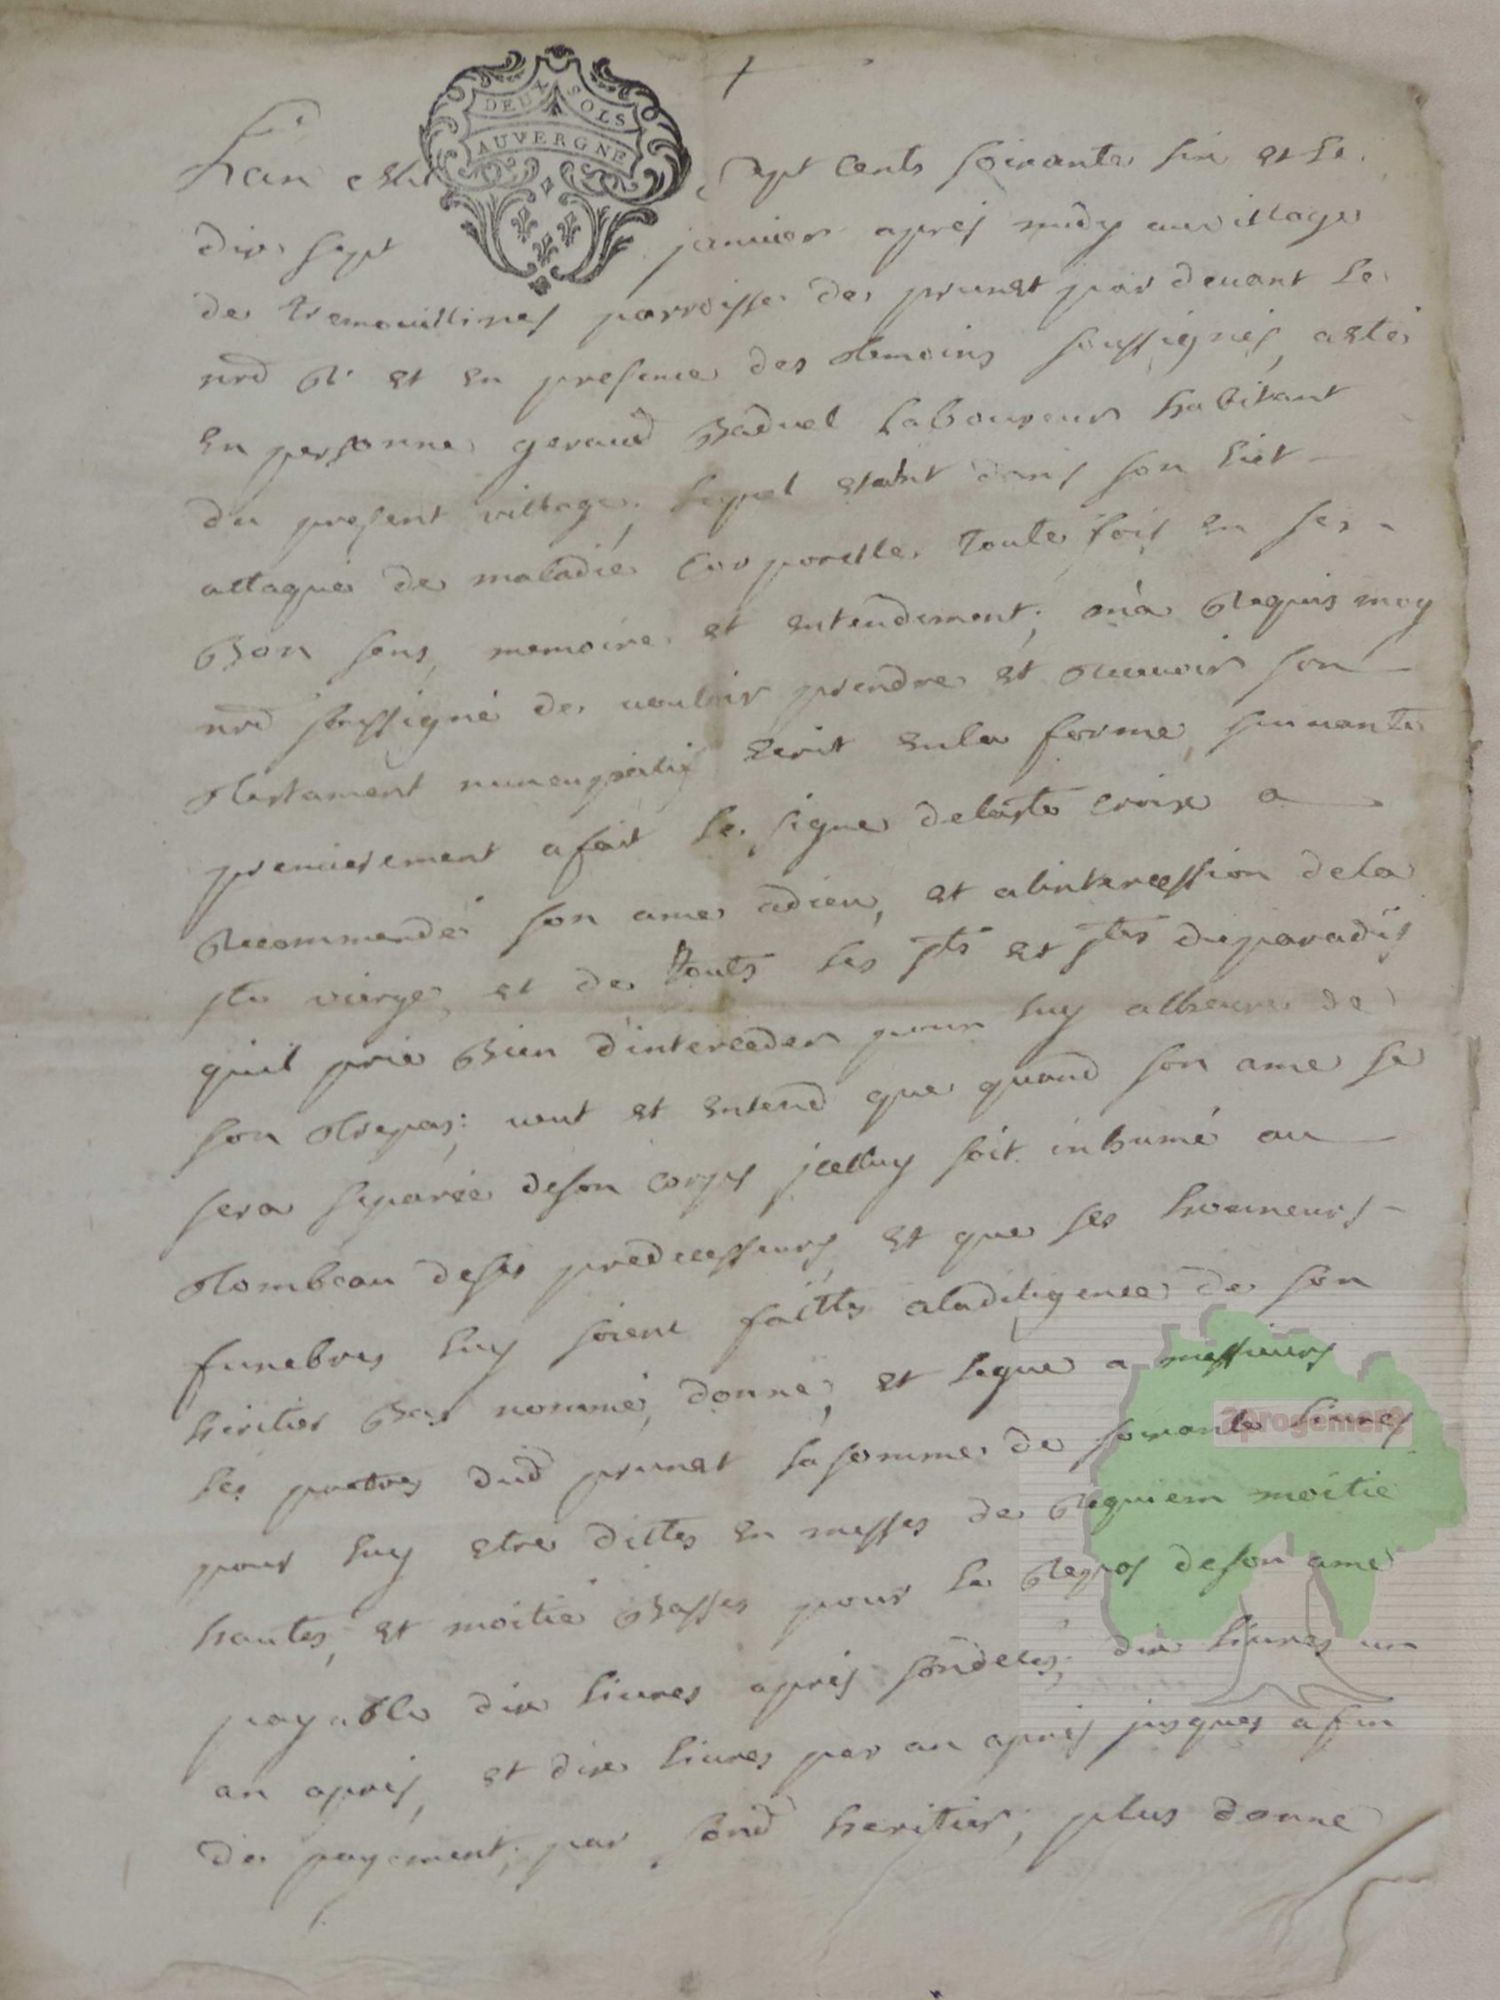 DEUX SOLS
AUVERGNE
Lan mil sept cents soixante six et le
dix sept janvier apres midy au village
de tremouillines parroisse de prunet par devant le
nrd Rl et en presence des temoins soussignés, a eté
en personne geraud Baduel laboureur habitant
du present village, lequel etant dans son liet
attaqué de maladie corporelle toute fois en ses
Bon sens, memoire et entendement; m'a Requis moy
nrd soussigné de vouloir prendre et recuuoir son
testament nuncupatif ecrit enla forme suivante
premierement a fait le signe delaste croix a
Recommendé son ame adieu, et alintercession dela
ste vierge, et de touts les sts et stes duparadis
quil prie Bien d'interceder pour luy alheure de
son trepas; veut et entend que quand son ame se
sera separée deson corps jcelluy soit inhumé au
tombeau deses predecesseurs, et que ses honneurs
funebres luy soient faittes aladiligence de son
heritier Bas nommé, donne, et legue a messieurs
les pretres dud prunet lasomme de soixante livres
pour luy etre dittes en messes de Requiem moitie
hautes, et moitié Basses pour le Repos deson ame
payable dix livres aprés sondeces, dix livres un
an aprés, et dix livres par an aprés jusques afin
de payement, par sond heritier, plus donne
2progemere